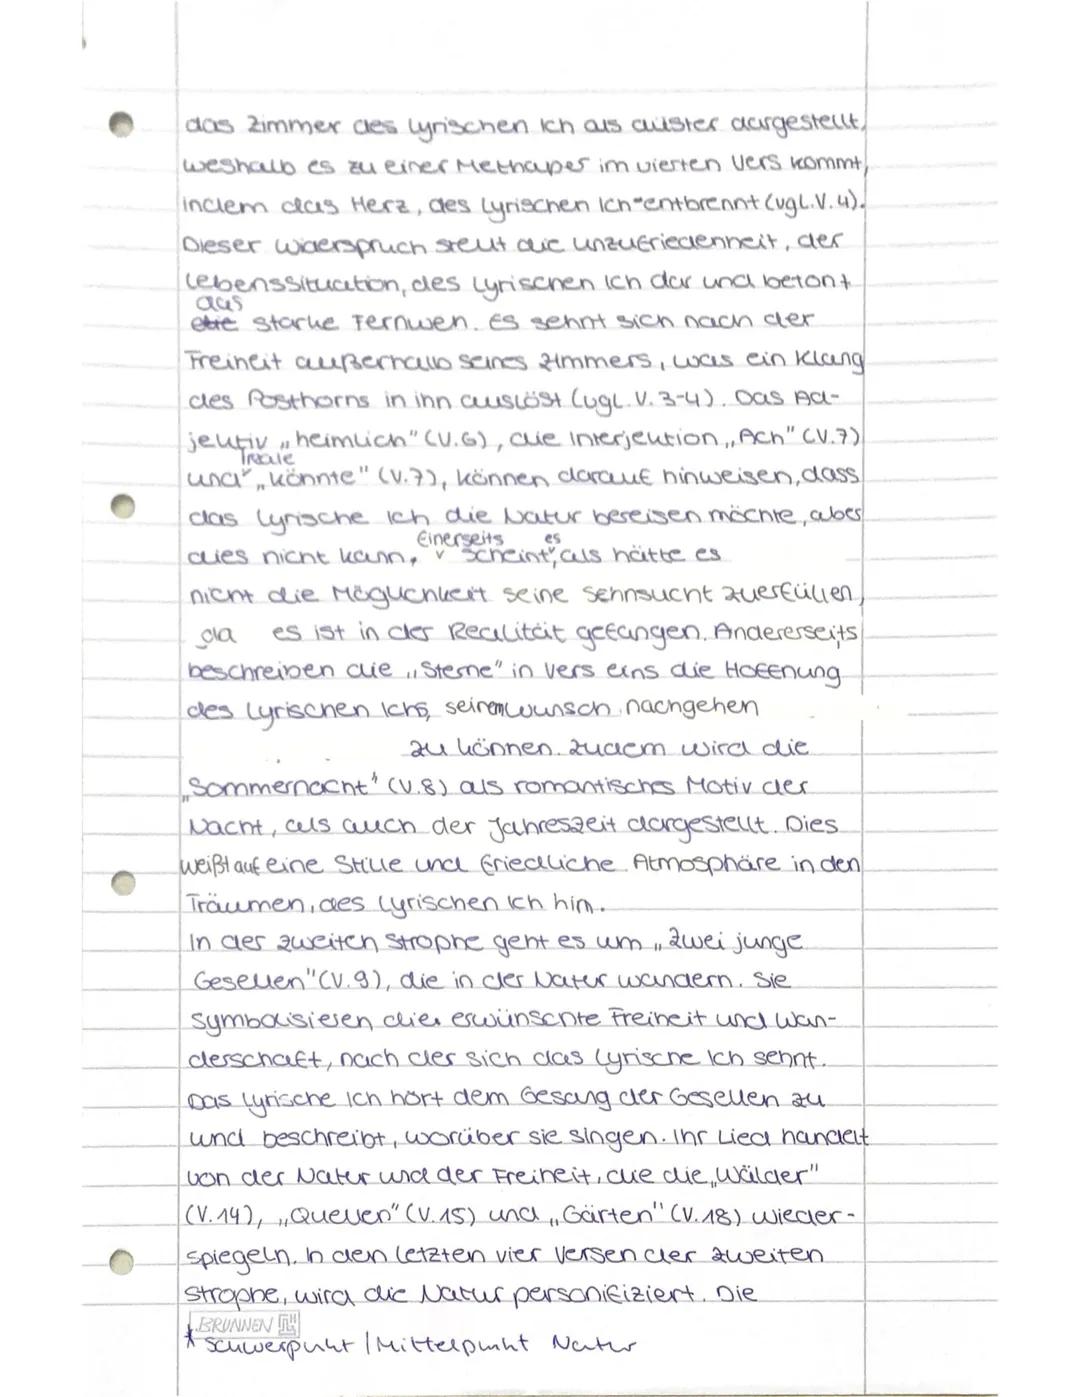 das Zimmer des lyrischen Ich als düster dargestellt,
weshalb es zu einer Methaper im vierten Vers kommt,
indem das Herz, des lyrischen Ich entbrennt (vgl. V. 4).
Dieser Widerspruch stellt die Unzufriedenheit, der
Lebenssituation, des lyrischen Ich dar und betont
das
starke Fernweh. Es sehnt sich nach der
Freiheit außerhalb seines Zimmers, was ein Klang
des Posthorns in ihn auslöst (vgl. V. 3-4). Das Ad-
jektiv „heimlich" (V.6), die Interjektion „Ach" (V.7)
und „könnte" (V.7), können darauf hinweisen, dass
das lyrische Ich die Natur bereisen möchte, aber
Einerseits es
dies nicht kann. scheint, als hätte es
nicht die Möglichkeit seine Sehnsucht zuerfüllen,
da es ist in der Realität gefangen. Andererseits
beschreiben die „Sterne" in Vers eins die Hoffnung
des lyrischen Ichs, seinem Wunsch nachgehen
zu können. Zudem wird die
„Sommernacht" (V.8) als romantisches Motiv der
Nacht, als auch der Jahreszeit dargestellt. Dies
weißt auf eine Stille und friedliche Atmosphäre in den
Träumen, des lyrischen Ich hin.
In der zweiten Strophe geht es um „zwei junge
Gesellen" (V.9), die in der Natur wandern. Sie
symbolisieren die erwünschte Freiheit und Wan-
derschaft, nach der sich das lyrische Ich sehnt.
Das lyrische Ich hört dem Gesang der Gesellen zu
und beschreibt, worüber sie singen. Ihr Lied handelt
von der Natur und der Freiheit, die die „Wälder"
(V.14), „Quellen" (V.15) und „Gärten" (V.18) wieder-
spiegeln. In den letzten vier Versen der zweiten
Strophe, wird die Natur personifiziert. Die
BRUNNEN
* Schwerpunkt / Mittelpunkt Natur